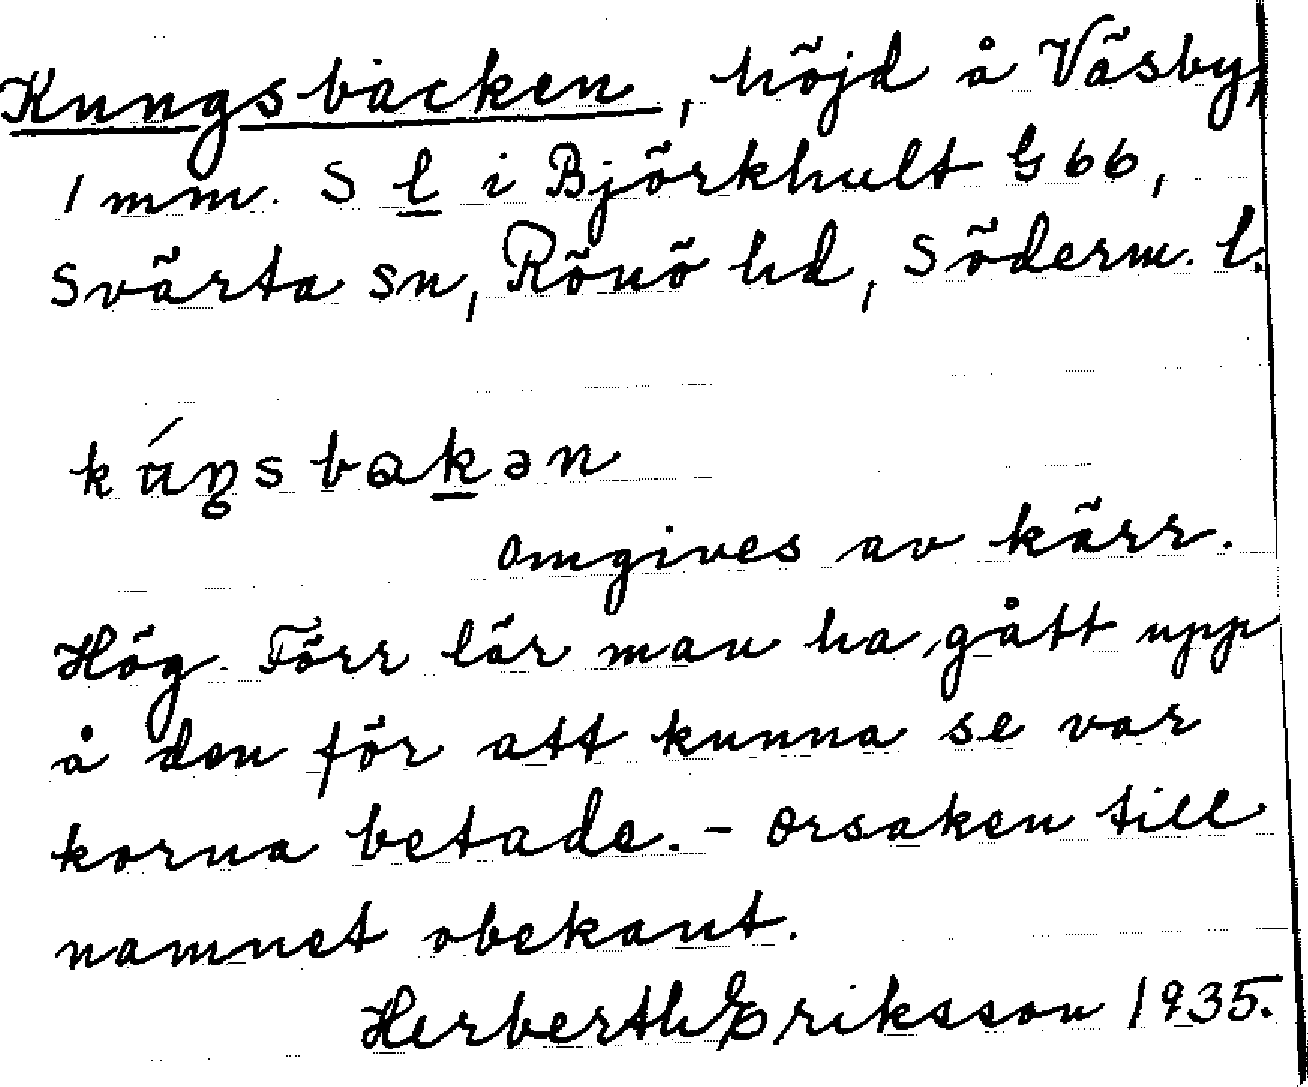 Kungsbacken, höjd å Väsby,
1 mm. S l i Björkhult G 66,
Svärta sn, Rönö hd, Söderm. l.
omgives av kärr.
Hög. Förr lär man ha gått upp
å den för att kunna se var
korna betade. - Orsaken till
namnet obekant.
Herberth Eriksson 1935.